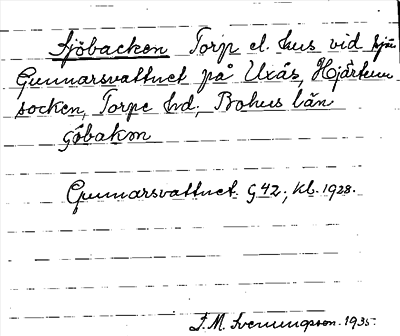 Sjöbacken Torp el. hus vid sjön
Gunnarsvattnet på Uxås, Hjärtum
socken, Torpe hd; Bohus län
göbakən
Gunnarsvattnet. G 42; Kl. 1928.
F. M. Svenungsson. 1935.